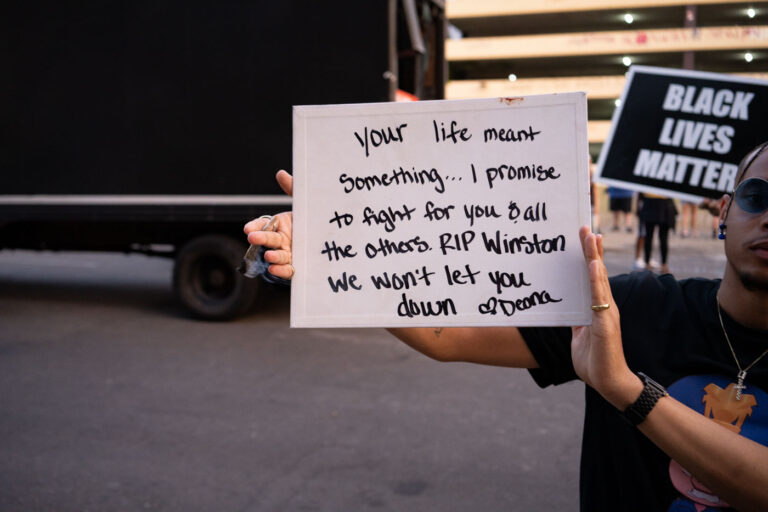 your life meant
something... I promise
to fight for you & all
the others. RIP Winston
we won't let you
down ♡Deona
BLACK
LIVES
MATTER